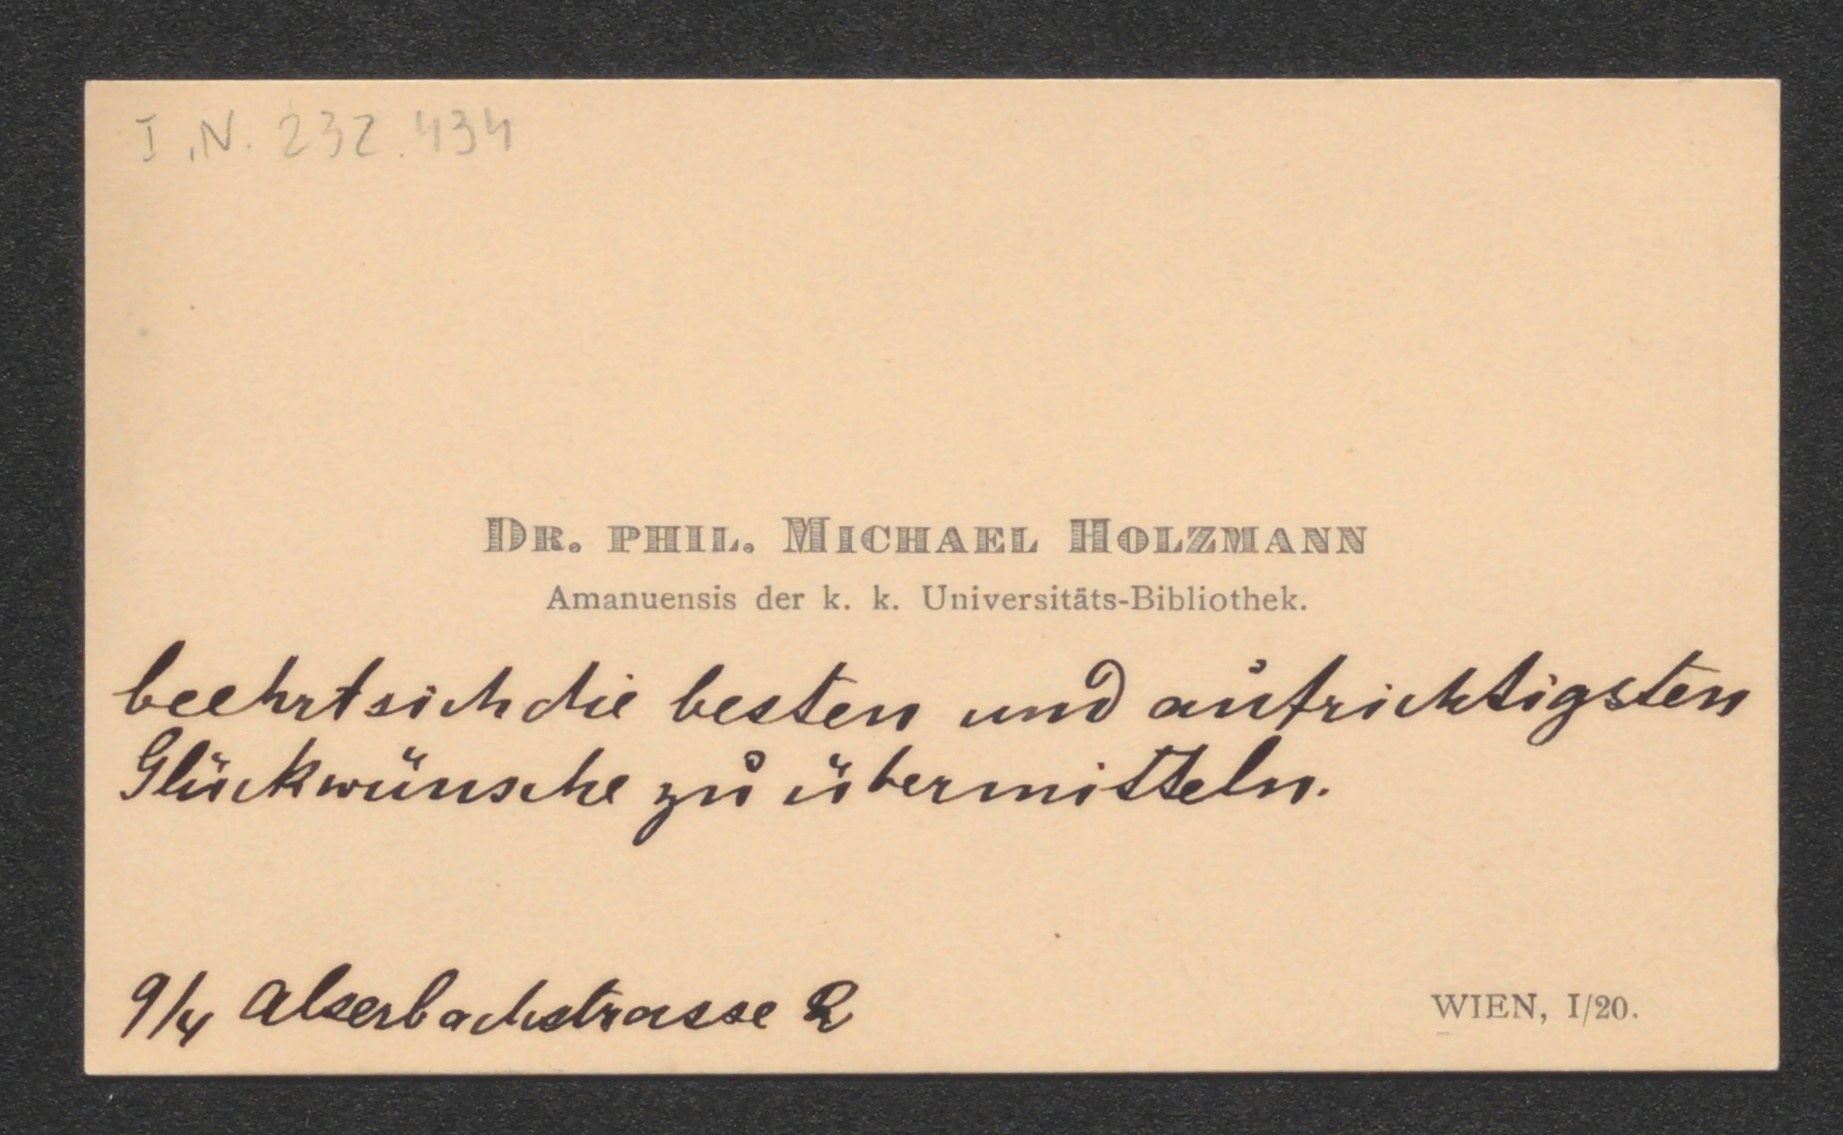 I.N. 232.434
DR. PHIL. MICHAEL HOLZMANN
Amanuensis der k. k. Universitäts-Bibliothek.
beehrt sich die besten und aufrichtigsten
Glückwünsche zu übermitteln.
9/4 Alserbachstrasse 2
WIEN, I/20.